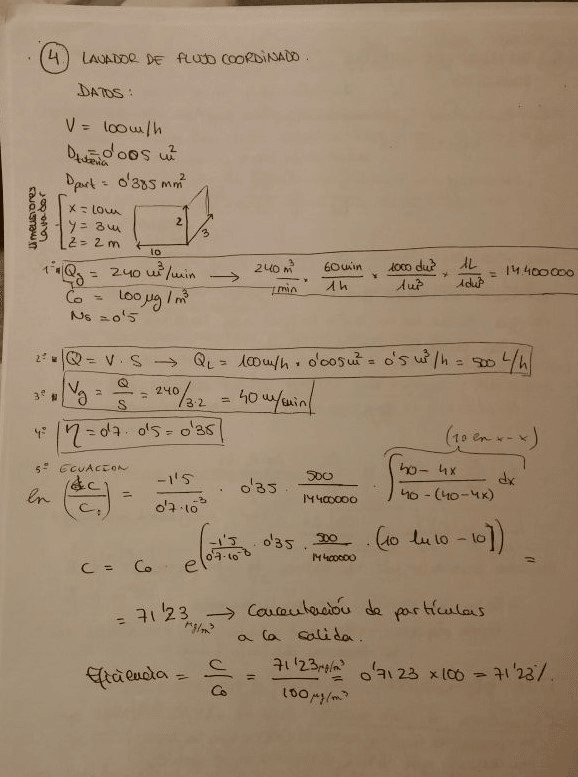 4. LAVADOR DE FLUJO COORDINADO.
DATOS:
V = 100 m/h
D tubería = 0'005 m²
Dpart = 0'385 mm²
Dimensiones Lavador
x = 10 m
y = 3 m
z = 2 m
2
3
10
1º Qg = 240 m³/min → 240 m³/1min × 60min/1h × 1000 dm³/1m³ × 1L/1dm³ = 14400000
Co = 100 μg/m³
Ns = 0'5
2º Q = V · S → QL = 100 m/h · 0'005 m² = 0'5 m³/h = 500 L/h
3º Vg = Q/S = 240/3·2 = 40 m/min
4º η = 0'7 · 0'5 = 0'35
5º ECUACION
(10 ln x - x)
ln (C/C₀) = -1'5/0'7·10⁻³ · 0'35 · 500/14400000 · ∫ 40 - 4x/40 - (40 - 4x) dx
C = Co · e^(-1'5/0'7·10⁻³ · 0'35 · 500/14400000 · (10 ln 10 - 10]) =
= 71'23 μg/m³ → Concentración de partículas
a la salida.
Eficiencia = C/Co = 71'23 μg/m³/100 μg/m³ = 0'7123 × 100 = 71'23%.